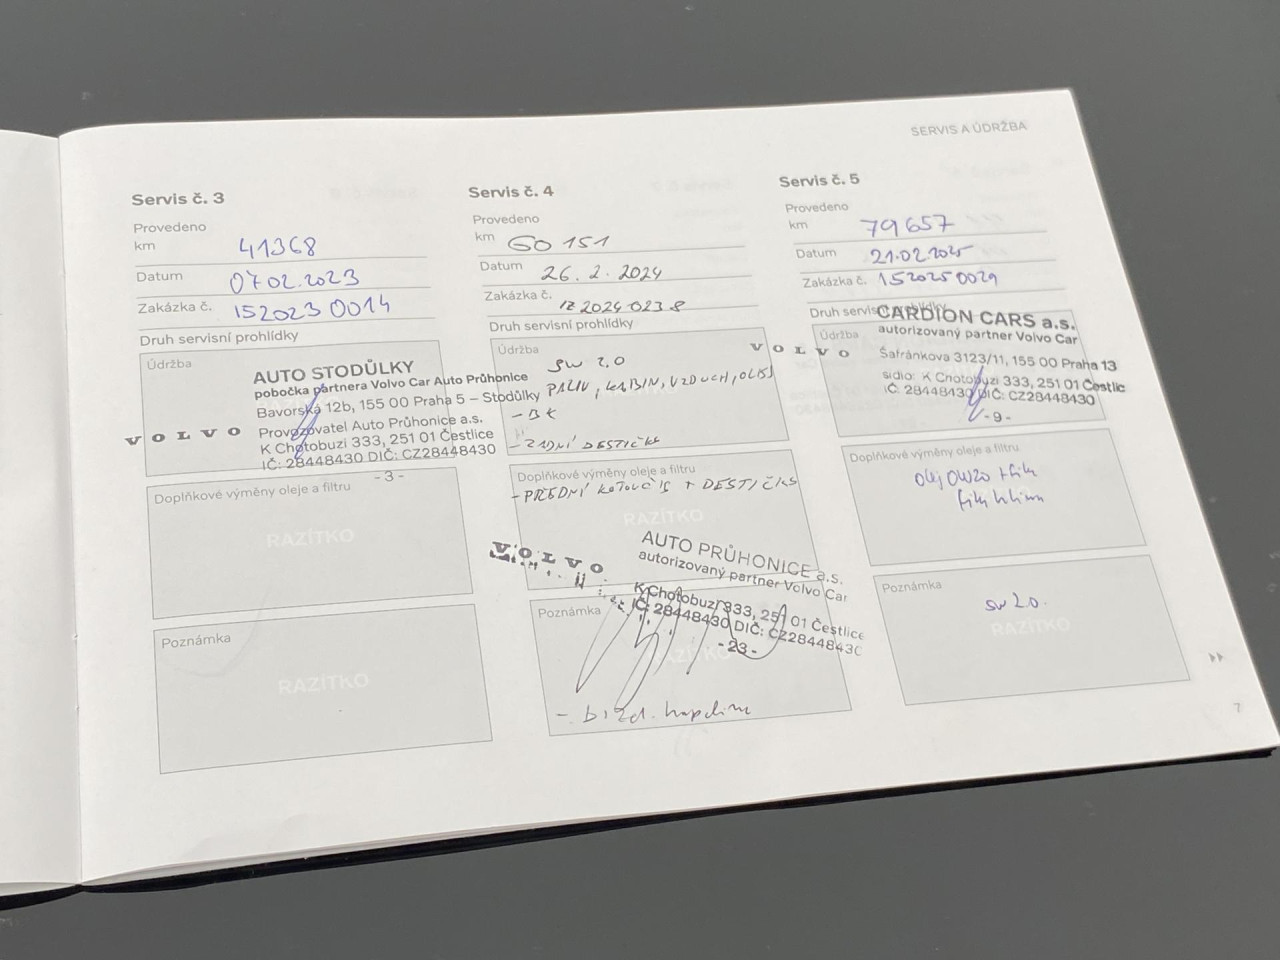 SERVIS A ÚDRŽBA
Servis č. 3
Provedeno
km 41368
Datum 07 02. 2023
Zakázka č. 152023 0014
Druh servisní prohlídky
Údržba
AUTO STODŮLKY
pobočka partnera Volvo Car Auto Průhonice
Bavorská 12b, 155 00 Praha 5 – Stodůlky
VOLVO
Provozovatel Auto Průhonice a.s.
K Chotobuzi 333, 251 01 Čestlice
IČ: 28448430 DIČ: CZ28448430
- 3 -
Doplňkové výměny oleje a filtru
RAZÍTKO
Poznámka
RAZÍTKO
Servis č. 4
Provedeno
km 60 151
Datum 26. 2. 2024
Zakázka č. 12 2024 0238
Druh servisní prohlídky
Údržba
SW 2,0
PALIV, KABIN, VZDUCH, OLEJ
- BK
- ZADNÍ DESTIČKY
Doplňkové výměny oleje a filtru
- PŘEDNÍ KOTOUČE + DESTIČKY
RAZÍTKO
VOLVO
AUTO PRŮHONICE a.s.
autorizovaný partner Volvo Car
K Chotobuzi 333, 251 01 Čestlice
IČ: 28448430 DIČ: CZ28448430
- 23 -
Poznámka
RAZÍTKO
- brzd. kapalina
Servis č. 5
Provedeno
km 79657
Datum 21.02.2025
Zakázka č. 152025 0029
Druh servisní prohlídky
Údržba
CARDION CARS a.s.
autorizovaný partner Volvo Car
VOLVO
Šafránkova 3123/11, 155 00 Praha 13
sídlo: K Chotobuzi 333, 251 01 Čestlic
IČ: 28448430 DIČ: CZ28448430
- 9 -
Doplňkové výměny oleje a filtru
olej 0W20 + filtr
filtr klima
Poznámka
SW 2.0.
RAZÍTKO
7